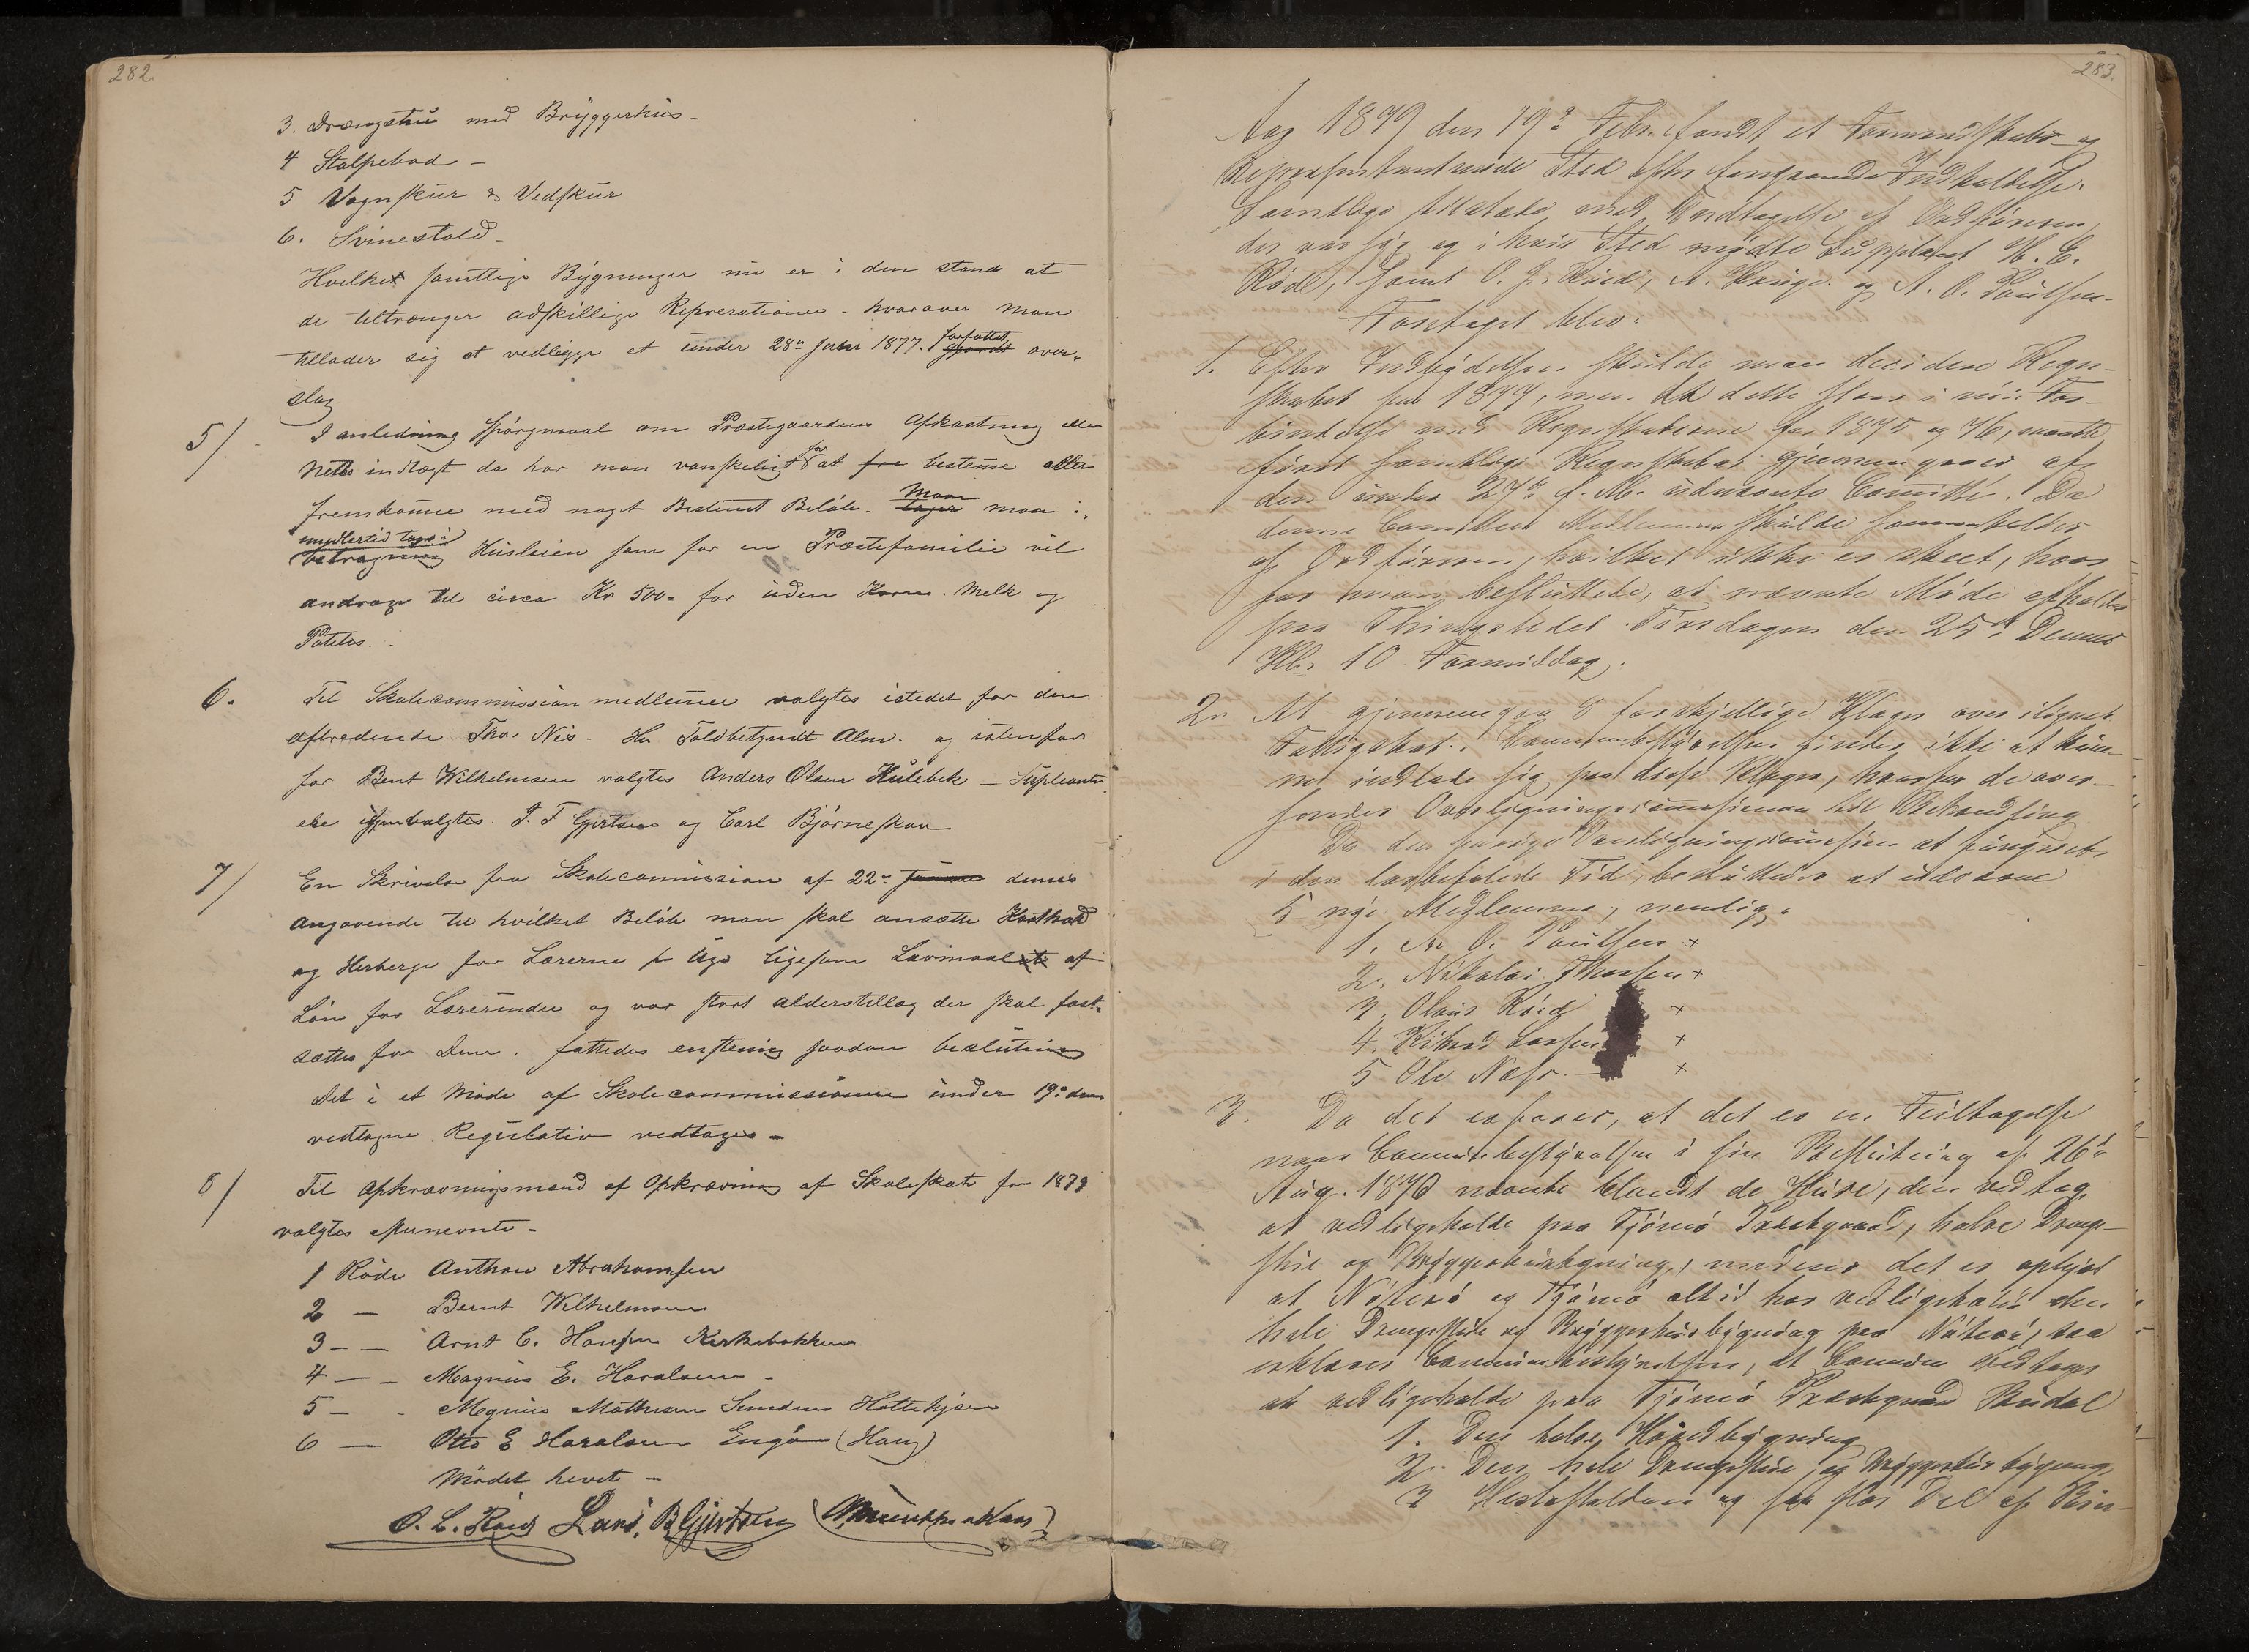 282.
3. Drængstu med Bryggerhus -
4 Stolpebod -
5 Vognskur & Vedskur
6. Svinestald -
Hvilket samtlige Bygninger nu er i den stand at
de tiltrænger adskillige Reprerationer - hvorover man
tillader sig at vedlægge et under 28de Juni 1877. forfattet over-
slag
5/. I anledning spørgmaal om Præstegaardens Afkastning eller
Netto indtægt da har man vanskeligt for at bestemme eller
fremkomme med noget Bestemt Beløb - Maa man i-
imidlertid tages i Husleien som for en Præstefamilie vil
andrage til circa Kr 500 - for uden Korn. Melk og
Poteter.
6. Til Skolecommission medlemer valgtes istedet for den
aftredende Tho. Nis - Hr Toldbetjendt Alm - og istenfor
for Bent Wilhelmsen valgtes Anders Olsen Hulebek - Supleanter
ere igjenvalgtes. J. F Gjertsen og Carl Bjørneskov
7/ En Skrivelse fra Skolecommission af 22de dennes
angaaende til hvilket Beløb man skal ansætte Kosthold
og Herberge for Lærerne pr Uge ligesom Lavmaal af
Løn for Lærerinder og vor stort alderstillæg der skal fast-
sættes for Dem. fattedes enstemig saadan beslutning
Det i et Møde af Skolecommissionen under 19de dens
vedtagne Regulativ vedtages -
8/ Til Opkrævningsmænd af Opkrævning af Skoleskat for 1879
valgtes
1 Rode Anthon Abrahamsen
2 — Bernt Wilhelmsen
3 - — Arnt C. Hansen Kirkebakken
4 — - Magnus E. Haralsen -
5 — - Magnus Mathisen Sundene Hottekjær
6 — Otto E Haralsen Engø (Haug)
Mødet hevet -
O. L. Røed Lars. B Gjertsen
283.
Aar 1879 den 19de Febr. fandt et Formandskabs- og
Repræsentantmøde Sted efter foregaaende Indkaldelse.
Samtlige tilstede, med Undtagelse af Ordføreren,
der var syg og i hvis Sted mødte Suppleant H. C.
Røed, samt O. J. Røed, A. Hauge og A. O. Poulsen.
Foretaget blev:
1. Efter Indbydelsen skulde man decidere Regn-
skabet for 1877, men da dette staar i nøie For-
bindelse med Regnskaberne for 1875 og 76, maatte
først samtlige Regnskaber gjennemgaaes af
den under 27de f. M. udnævnte Comitte. Da
denne Comittees Medlemmer skulde sammenkaldes
af Ordføreren, hvilket ikke er skeet, hvor-
for man besluttede, at nævnte Møde afholdes
paa Thingstedet Tirsdagen den 25de Dennes
Kl. 10 Formiddag.
2. At gjennemgaa 8 forskjellige Klager over ilignet
Fattigskat. Communebestyrelsen finder ikke at kun-
ne indlade sig paa disse Klager, hvorfor de over-
sendes Overligningscommissionen til Behandling
Da den forrige Overligningscommission at fungeret
i den lovbefalede Tid, besluttedes at udnævne
5 nye Medlemmer, nemlig:
1. A. O. Poulsen +
2. Nikolai Thorsen +
3. Olaus Røed +
4. Rikard Larsen +
5 Ole Næss. — +
3. Da det erfares, at det er en Feiltagelse
naar Communebestyrelsen i sin Beslutning af 26de
Aug. 1876 nævnte blandt de Huse, den vedtog
at vedligeholde paa Tjømø Præstgaard, halve Drengs-
stue og Bryggerhusbygning, medens det er oplyst
at Nøterø og Tjømø altid har vedligeholdt den
hele Drengstue og Bryggerhusbygning paa Nøterø, saa
erklærer Communebestyrelsen, at Comunen vedtager
at vedligeholde paa Tjømø Præstegaard Rødal
1. Den halve Hovedbygning
2. Den hele Drengestue og Bryggerhusbygning
3 Hestestalden og saa stor Del af